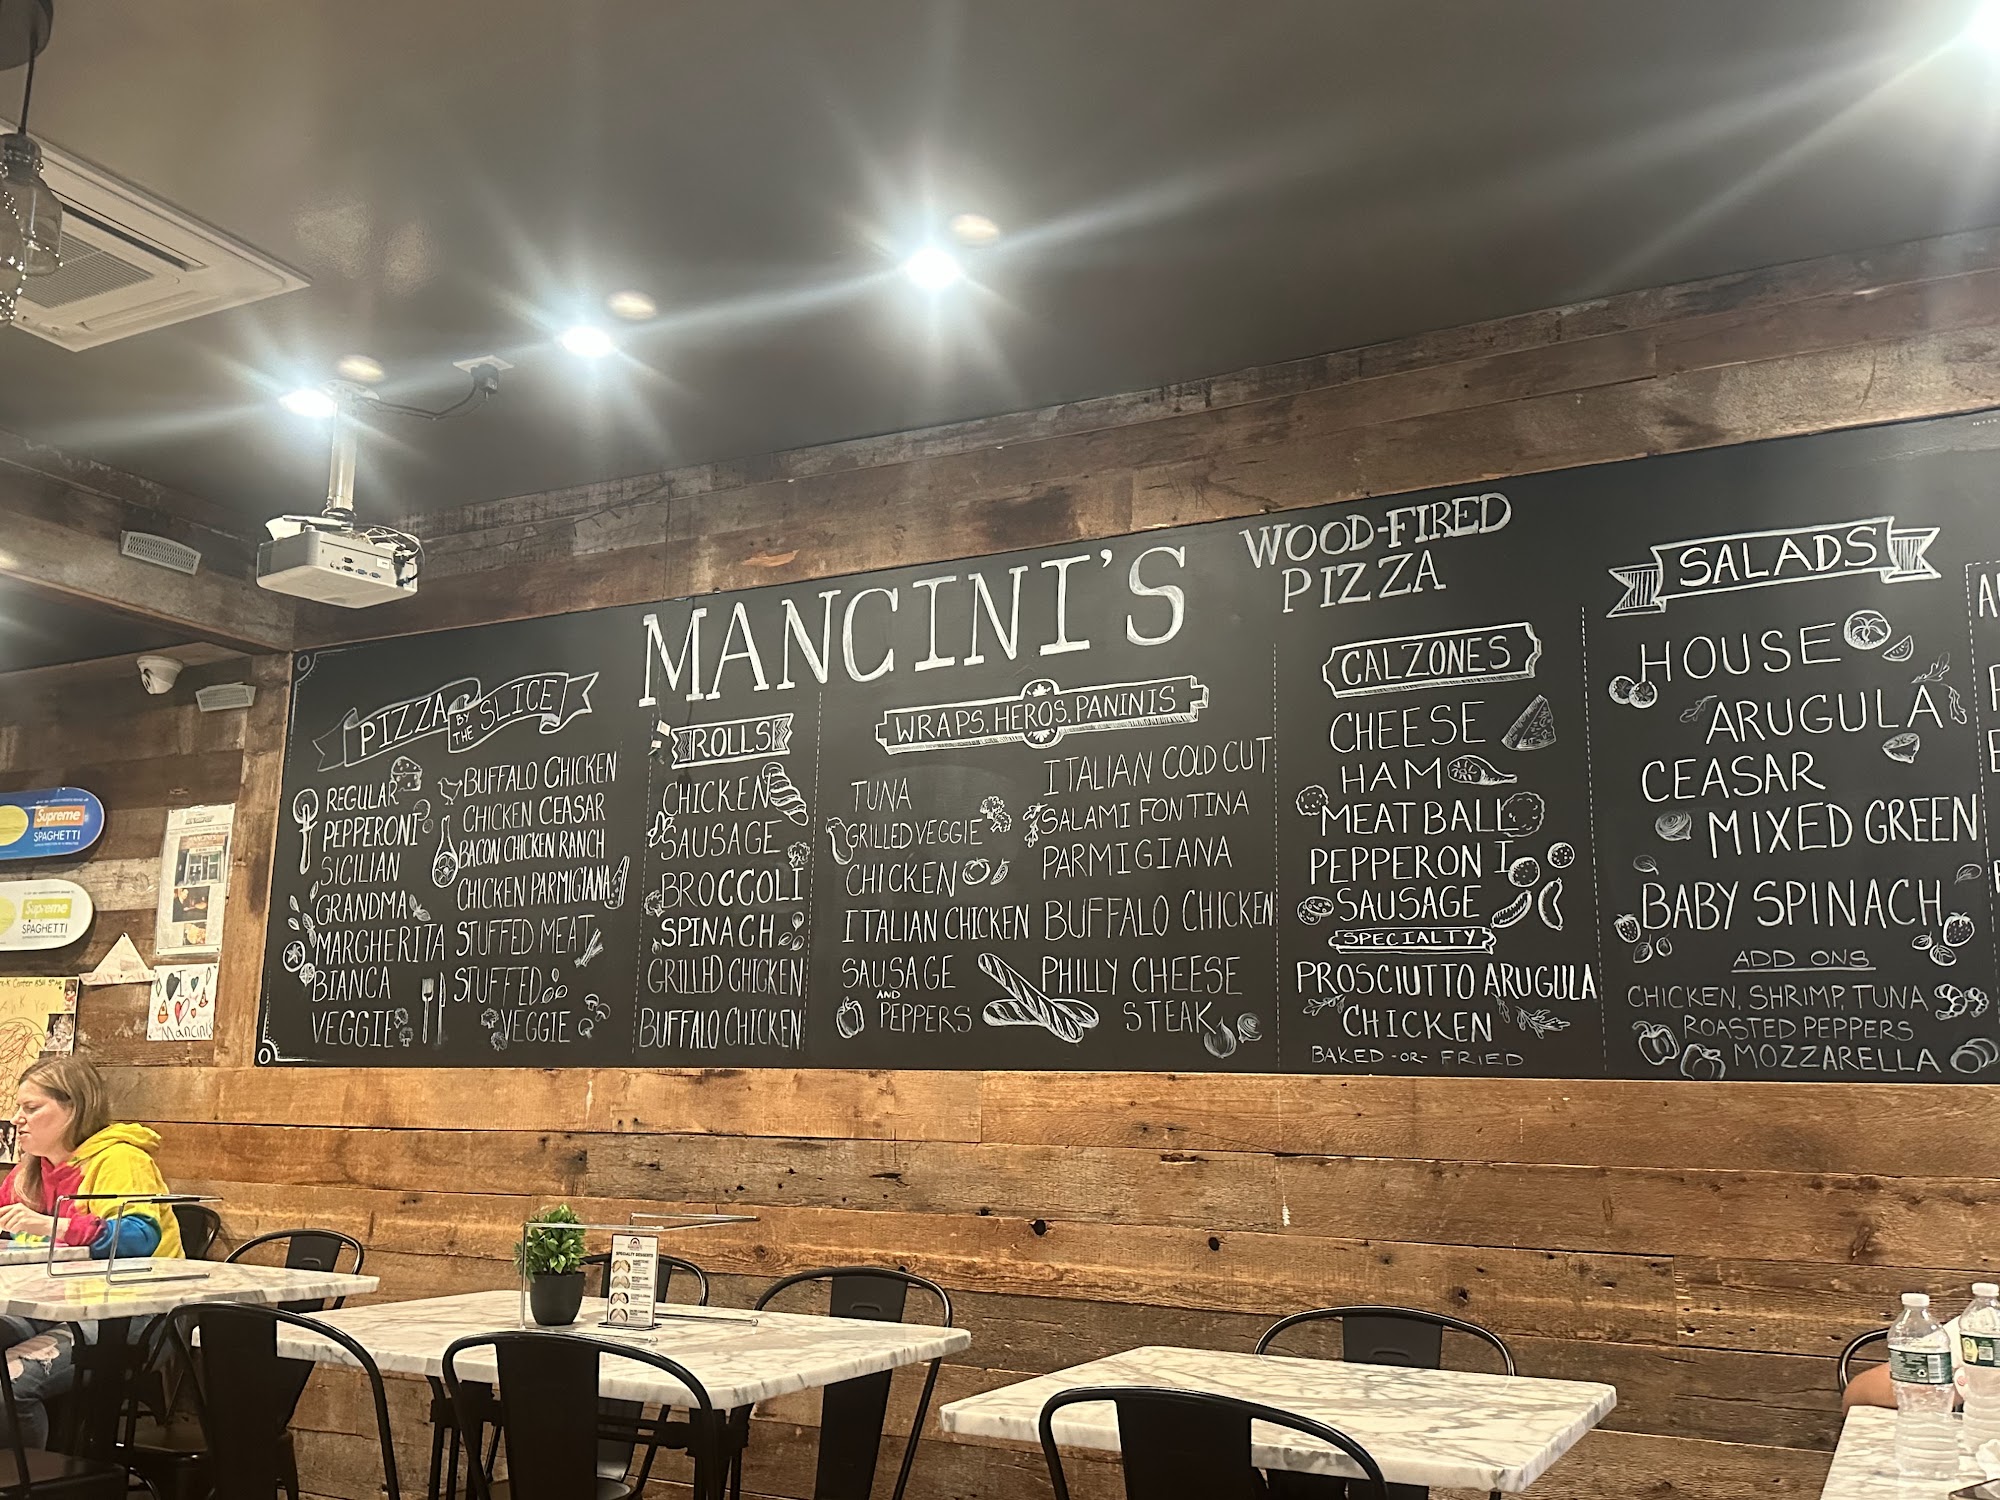 MANCINI'S
WOOD-FIRED
PIZZA
PIZZA BY THE SLICE
REGULAR
PEPPERONI
SICILIAN
GRANDMA
MARGHERITA
BIANCA
VEGGIE
BUFFALO CHICKEN
CHICKEN CEASAR
BACON CHICKEN RANCH
CHICKEN PARMIGIANA
STUFFED MEAT
STUFFED
VEGGIE
ROLLS
CHICKEN
SAUSAGE
BROCCOLI
SPINACH
GRILLED CHICKEN
BUFFALO CHICKEN
WRAPS, HEROS, PANINIS
TUNA
GRILLED VEGGIE
CHICKEN
ITALIAN CHICKEN
SAUSAGE
AND
PEPPERS
ITALIAN COLD CUT
SALAMI FONTINA
PARMIGIANA
BUFFALO CHICKEN
PHILLY CHEESE
STEAK
CALZONES
CHEESE
HAM
MEATBALL
PEPPERONI
SAUSAGE
SPECIALTY
PROSCIUTTO ARUGULA
CHICKEN
BAKED -OR- FRIED
SALADS
HOUSE
ARUGULA
CEASAR
MIXED GREEN
BABY SPINACH
ADD ONS
CHICKEN, SHRIMP, TUNA
ROASTED PEPPERS
MOZZARELLA
Supreme
SPAGHETTI
Supreme
SPAGHETTI
Mancini's
SPECIALTY DESSERTS